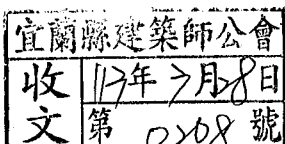 宜蘭縣建築師公會
收文 113年3月28日
第 0208 號